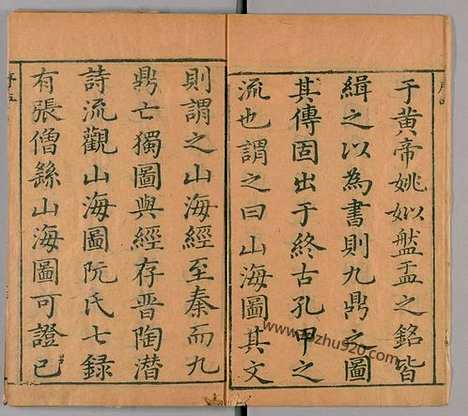 于黄帝姚姒盤盂之銘皆
緝之以為書則九鼎之圖
其傳固出于終古孔甲之
流也謂之曰山海圖其文
則謂之山海經至秦而九
鼎亡獨圖與經存晉陶潛
詩流觀山海圖阮氏七錄
有張僧繇山海圖可證已
www.gzhu920.com